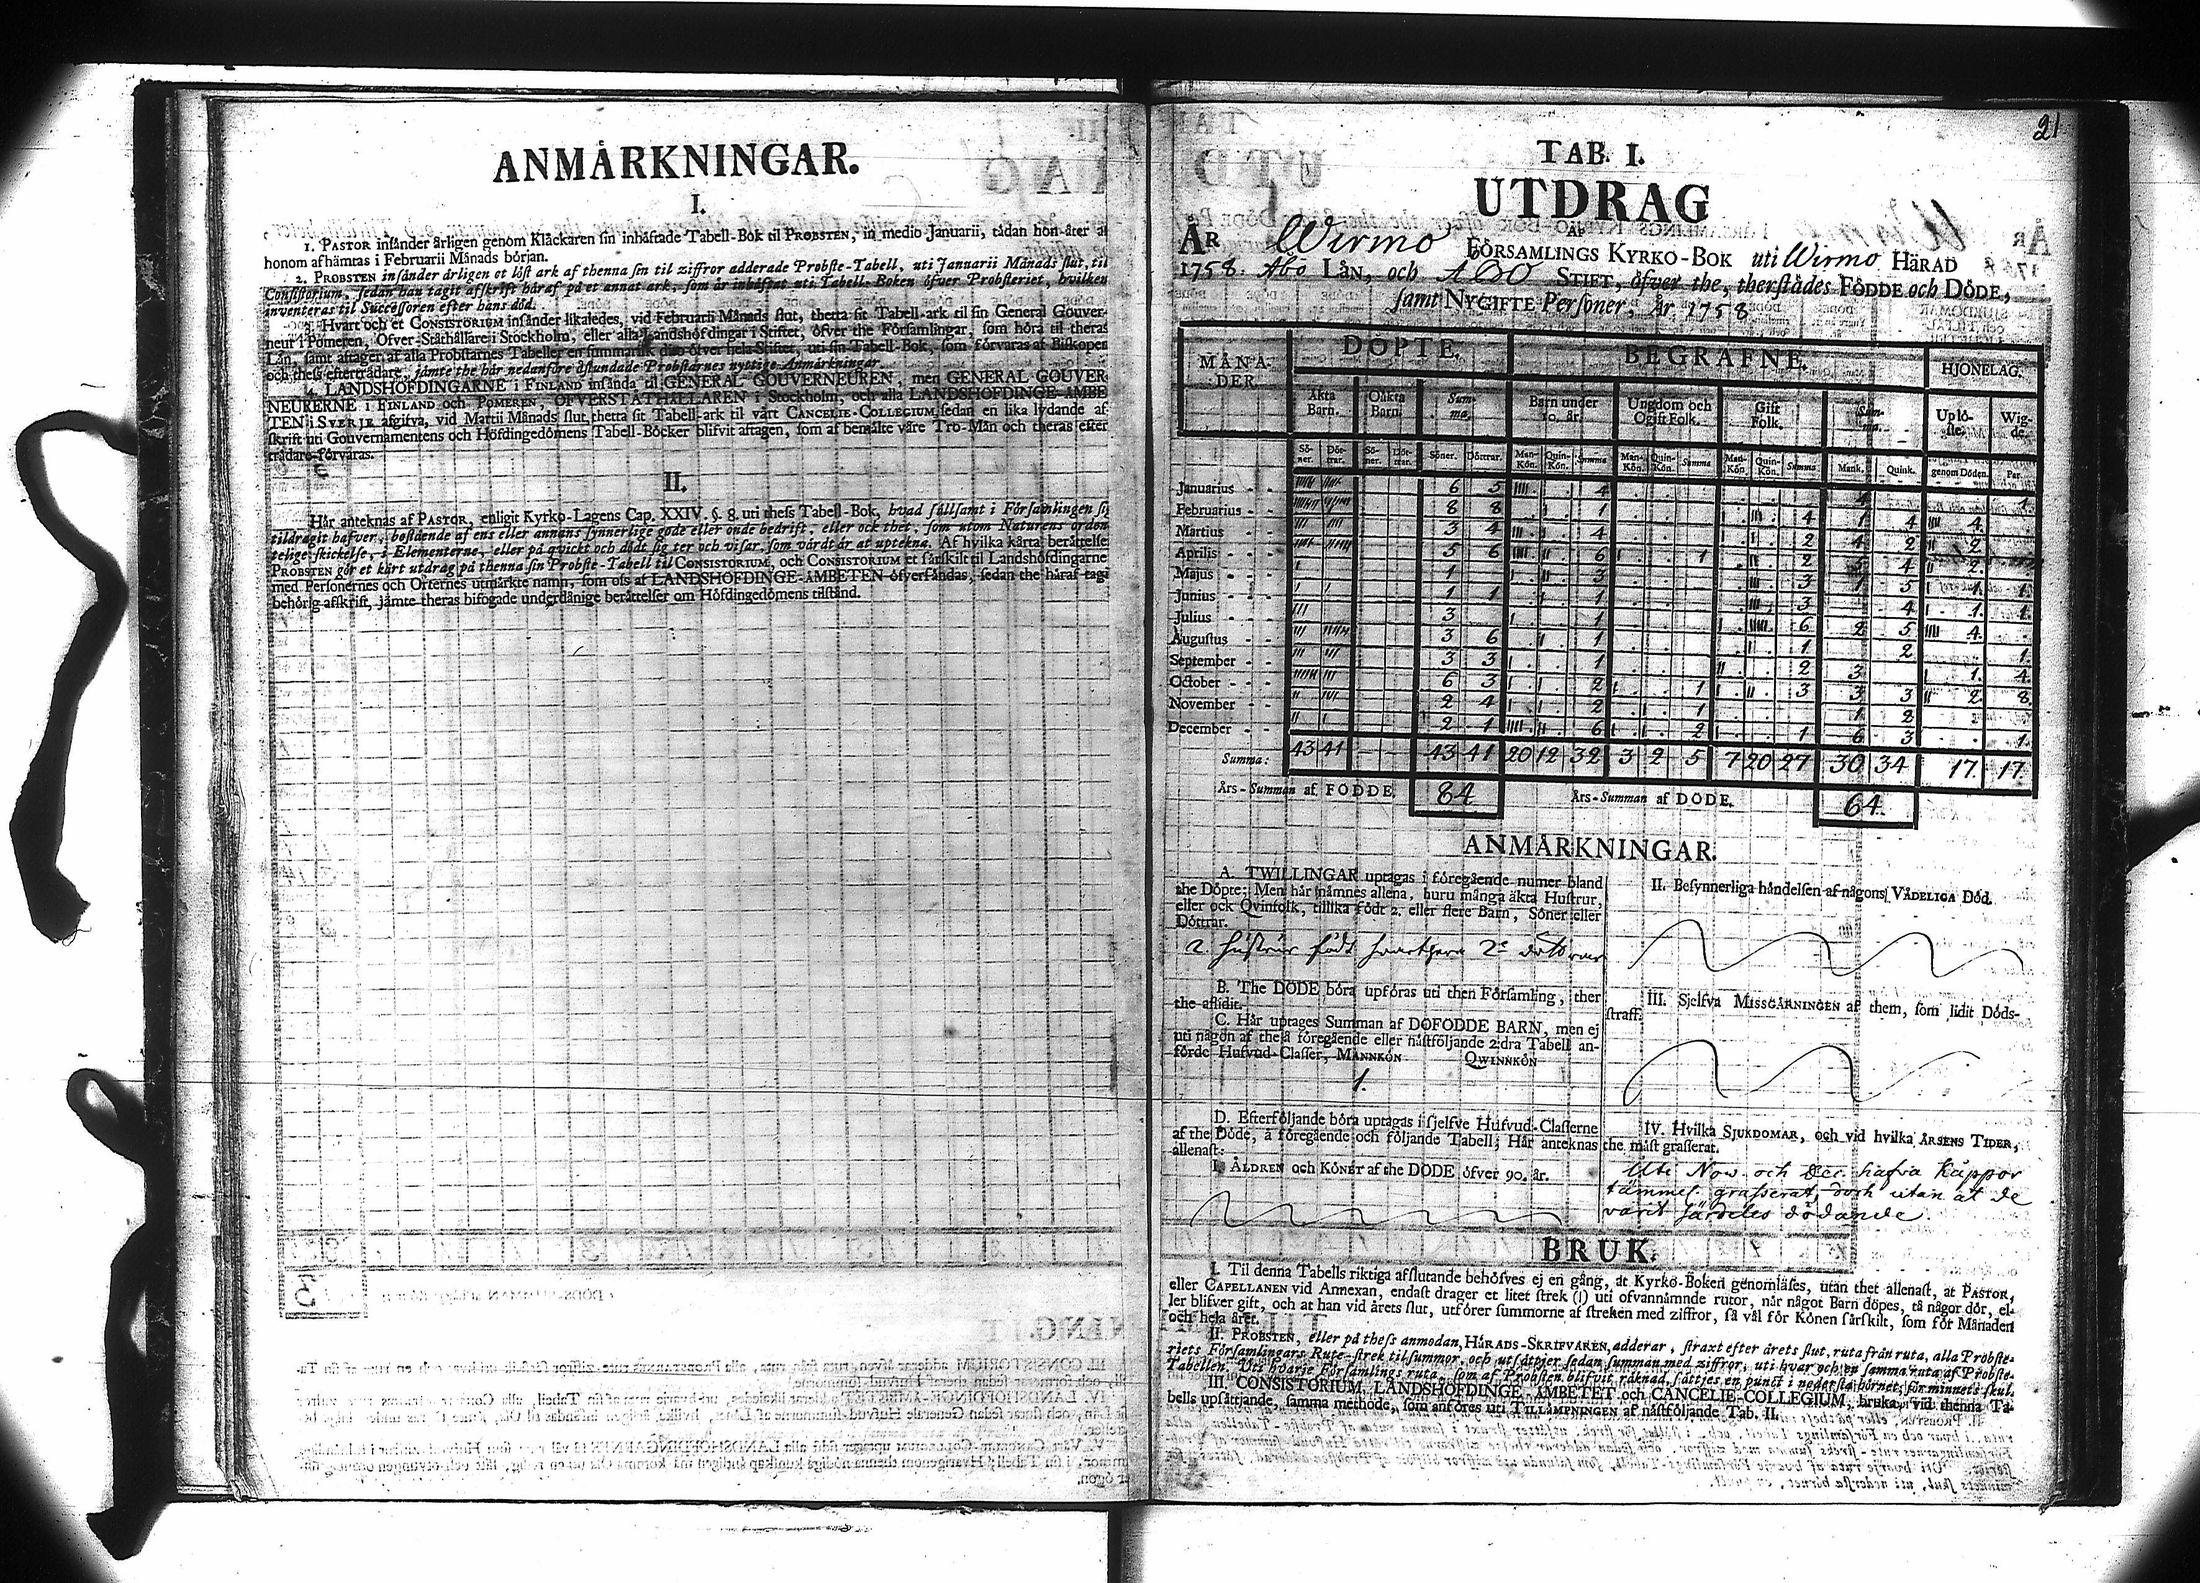 ANMÄRKNINGAR.
I.
1. PASTOR insänder årligen genom Klåckaren sin inhäftade Tabell-Bok til PROBSTEN, in medio Januarii, tådan hon åter af
honom afhämtas i Februarii Månads början.
2. PROBSTEN insänder årligen et löst ark af thenna sin til ziffror adderade Probste-Tabell, uti Januarii Månads slut, til
Consistorium, sedan han tagit afskrift häraf på et annat ark, som är inhäftat uti Tabell-Boken öfver Probsteriet, hvilken
inventeras til Successoren efter hans död.
3. Hvart och et CONSISTORIUM insänder likaledes, vid Februarii Månads slut, thetta sit Tabell-ark til sin General Gouver-
neur i Pomeren, Öfver-Ståthållare i Stockholm, eller alla Landshöfdingar i Stiftet, öfver the Församlingar, som höra til theras
Län, samt aftager af alla Probstarnes Tabeller en summarisk dito öfver hela Stiftet, uti sin Tabell-Bok, som förvaras af Biskopen
och thess efterträdare, jämte the här nedanföre åstundade Probstarnes nyttige Anmärkningar.
4. LANDSHÖFDINGARNE i FINLAND insända til GENERAL GOUVERNEUREN, men GENERAL GOUVER-
NEURERNE i FINLAND och POMEREN, ÖFVERSTÅTHÅLLAREN i Stockholm, och alla LANDSHÖFDINGE-ÄMBE-
TEN i SVERJE afgifva, vid Martii Månads slut, thetta sit Tabell-ark til vårt CANCELIE-COLLEGIUM, sedan en lika lydande af-
skrift uti Gouvernamentens och Höfdingedömens Tabell-Böcker blifvit aftagen, som af bemälte våre Tro-Män och theras efter
trädare förvaras.
II.
Här anteknas af PASTOR, enligit Kyrko-Lagens Cap. XXIV. §. 8. uti thess Tabell-Bok, hvad sällsamt i Församlingen sig
tildragit hafver, bestående af ens eller annans synnerlige gode eller onde bedrift, eller ock thet, som utom Naturens orden
telige skickelse, i Elementerne, eller på qvickt och dödt sig ter och visar, som värdt är at uptekna. Af hvilka kårta berättelse
PROBSTEN gör et kårt utdrag på thenna sin Probste-Tabell til CONSISTORIUM, och CONSISTORIUM et särskilt til Landshöfdingarne
med Personernes och Orternes utmärkte namn, som oss af LANDSHÖFDINGE-ÄMBETEN öfversändas, sedan the häraf tagi
behörig afskrift, jämte theras bifogade underdånige berättelser om Höfdingedömens tilstånd.
21
TAB. I.
UTDRAG
AF
ÅR Wirmo FÖRSAMLINGS KYRKO-BOK uti Wirmo HÄRAD
1758. Åbo LÄN, och ABO STIFT, öfver the, therstädes FÖDDE och DÖDE,
samt NYGIFTE Personer, År 1758
MÅNA-DER. DÖPTE. BEGRAFNE. HJONELAG.
Äkta Barn. Oäkta Barn. Summa. Barn under 10. år. Ungdom och Ogift Folk. Gift Folk. Summa. Uplöste. Wigde.
Söner. Döttrar. Söner. Döttrar. Söner. Döttrar. Man-Kön. Quin-Kön. Summa Man-Kön. Quin-Kön. Summa Man-Kön. Quin-Kön. Summa Mank. Quink. genom Döden. Par.
Januarius 6 5 4 4 1.
Februarius 8 8 1 4 1 4 4.
Martius 3 4 4 2 4 2 2.
Aprilis 5 6 6 1 2 5 4 2.
Majus 1 3 3 1 5 1. 1.
Junius 1 1 1 3 4 1. 1.
Julius 3 1 6 2 5 4.
Augustus 3 6 1 1 2 1.
September 3 3 1 2 3 1. 4.
October 6 3 2 1 3 3 3 2 8.
November 2 4 2 1 1 2
December 2 1 6 2 1 6 3 1.
Summa: 43 41 43 41 20 12 32 3 2 5 7 20 27 30 34 17. 17.
Års-Summan af FÖDDE. 84
Års-Summan af DÖDE. 64.
ANMÄRKNINGAR.
A. TWILLINGAR uptagas i föregående numer bland
the Döpte: Men här nämnes allena, huru många äkta Hustrur,
eller ock Qvinfolk, tillika födt 2. eller flere Barn, Söner eller
Döttrar.
2 hustrur födt hvarthera 2e döttrar
B. The DÖDE böra upföras uti then Församling, ther
the aflidit.
C. Här uptages Summan af DÖFÖDDE BARN, men ej
uti någon af theså föregående eller nästföljande 2:dra Tabell an-
förde Hufvud-Classer, MANNKÖN QWINNKÖN
1.
D. Efterföljande böra uptagas i sjelfve Hufvud-Classerne
af the Döde, å föregående och följande Tabell; Här anteknas
allenast:
I. ÅLDREN och KÖNET af the DÖDE öfver 90. år.
II. Besynnerliga händelsen af någons VÅDELIGA Död.
III. Sjelfva MISSGÄRNINGEN af them, som lidit Döds-
straff.
IV. Hvilka SJUKDOMAR, och vid hvilka ÅRSENS TIDER,
the mäst grasserat.
Uti Nov. och Dec. hafva Kåppor
tämmel. grasserat, doch utan at de
varit särdeles dödande.
BRUK.
I. Til denna Tabells riktiga afslutande behöfves ej en gång, at Kyrko-Boken genomläses, utan thet allenast, at PASTOR,
eller CAPELLANEN vid Annexan, endast drager et litet strek (|) uti ofvannämnde rutor, när något Barn döpes, tå någor dör, el-
ler blifver gift, och at han vid årets slut, utförer summorne af streken med ziffror, så väl för Könen särskilt, som för Månaden
och hela året.
II. PROBSTEN, eller på thess anmodan, HÄRADS-SKRIFVAREN, adderar, straxt efter årets slut, ruta från ruta, alla Probste-
riets Församlingars Rute-strek til summor, och utsättjer sedan summan med ziffror, uti hvar och en samma ruta af Probste-
Tabellen. Uti hvarje Församlings ruta, som af Probsten blifvit räknad, sättjes en punct i nedersta hörnet, för minnets skul.
III. CONSISTORIUM, LANDSHÖFDINGE-ÄMBETET och CANCELIE-COLLEGIUM, bruka, vid thenna Ta-
bells upsättjande, samma methode, som anföres uti TILLÄMPNINGEN af nästföljande Tab. II.